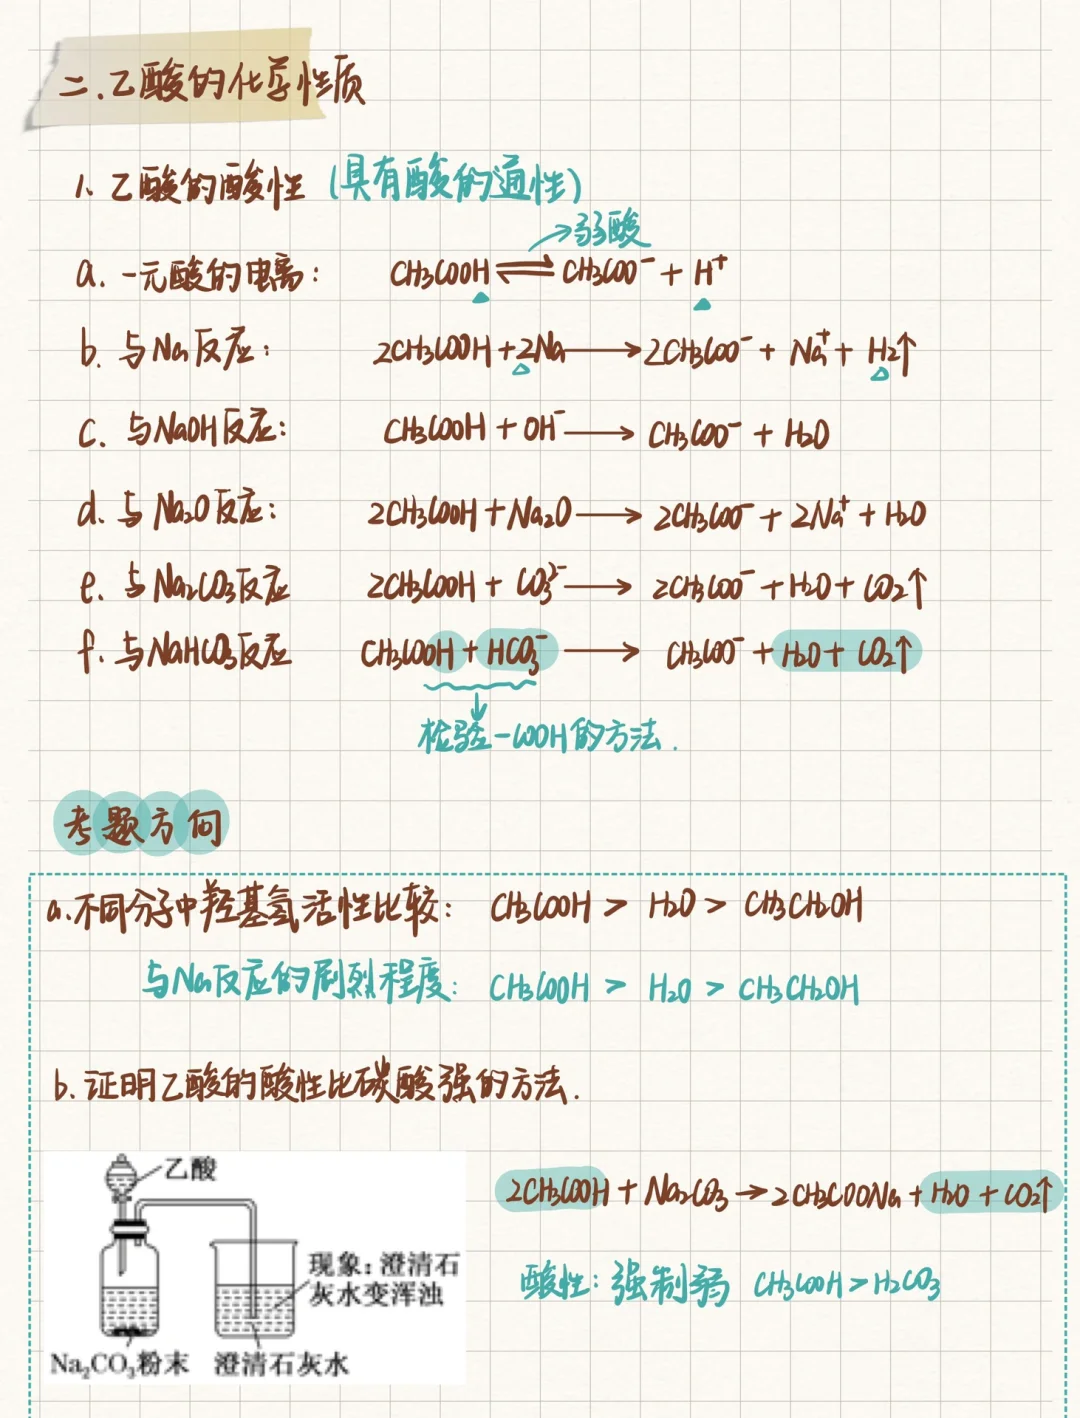 二.乙酸的化学性质
1. 乙酸的酸性 (具有酸的通性)
→弱酸
a. 一元酸的电离: CH3COOH⇌CH3COO⁻ + H⁺
b. 与Na反应: 2CH3COOH+2Na→2CH3COO⁻ + Na⁺ + H2↑
c. 与NaOH反应: CH3COOH + OH⁻→CH3COO⁻ + H2O
d. 与Na2O反应: 2CH3COOH+Na2O→2CH3COO⁻ + 2Na⁺ + H2O
e. 与Na2CO3反应 2CH3COOH + CO3²⁻→2CH3COO⁻ + H2O + CO2↑
f. 与NaHCO3反应 CH3COOH + HCO3⁻→CH3COO⁻ + H2O + CO2↑
检验-COOH的方法.
考题方向
a.不同分子中羟基氢活性比较: CH3COOH > H2O > CH3CH2OH
与Na反应的剧烈程度: CH3COOH > H2O > CH3CH2OH
b.证明乙酸的酸性比碳酸强的方法.
乙酸
2CH3COOH + Na2CO3→2CH3COONa + H2O + CO2↑
现象:澄清石
灰水变浑浊
酸性: 强制弱 CH3COOH>H2CO3
Na₂CO₃粉末 澄清石灰水